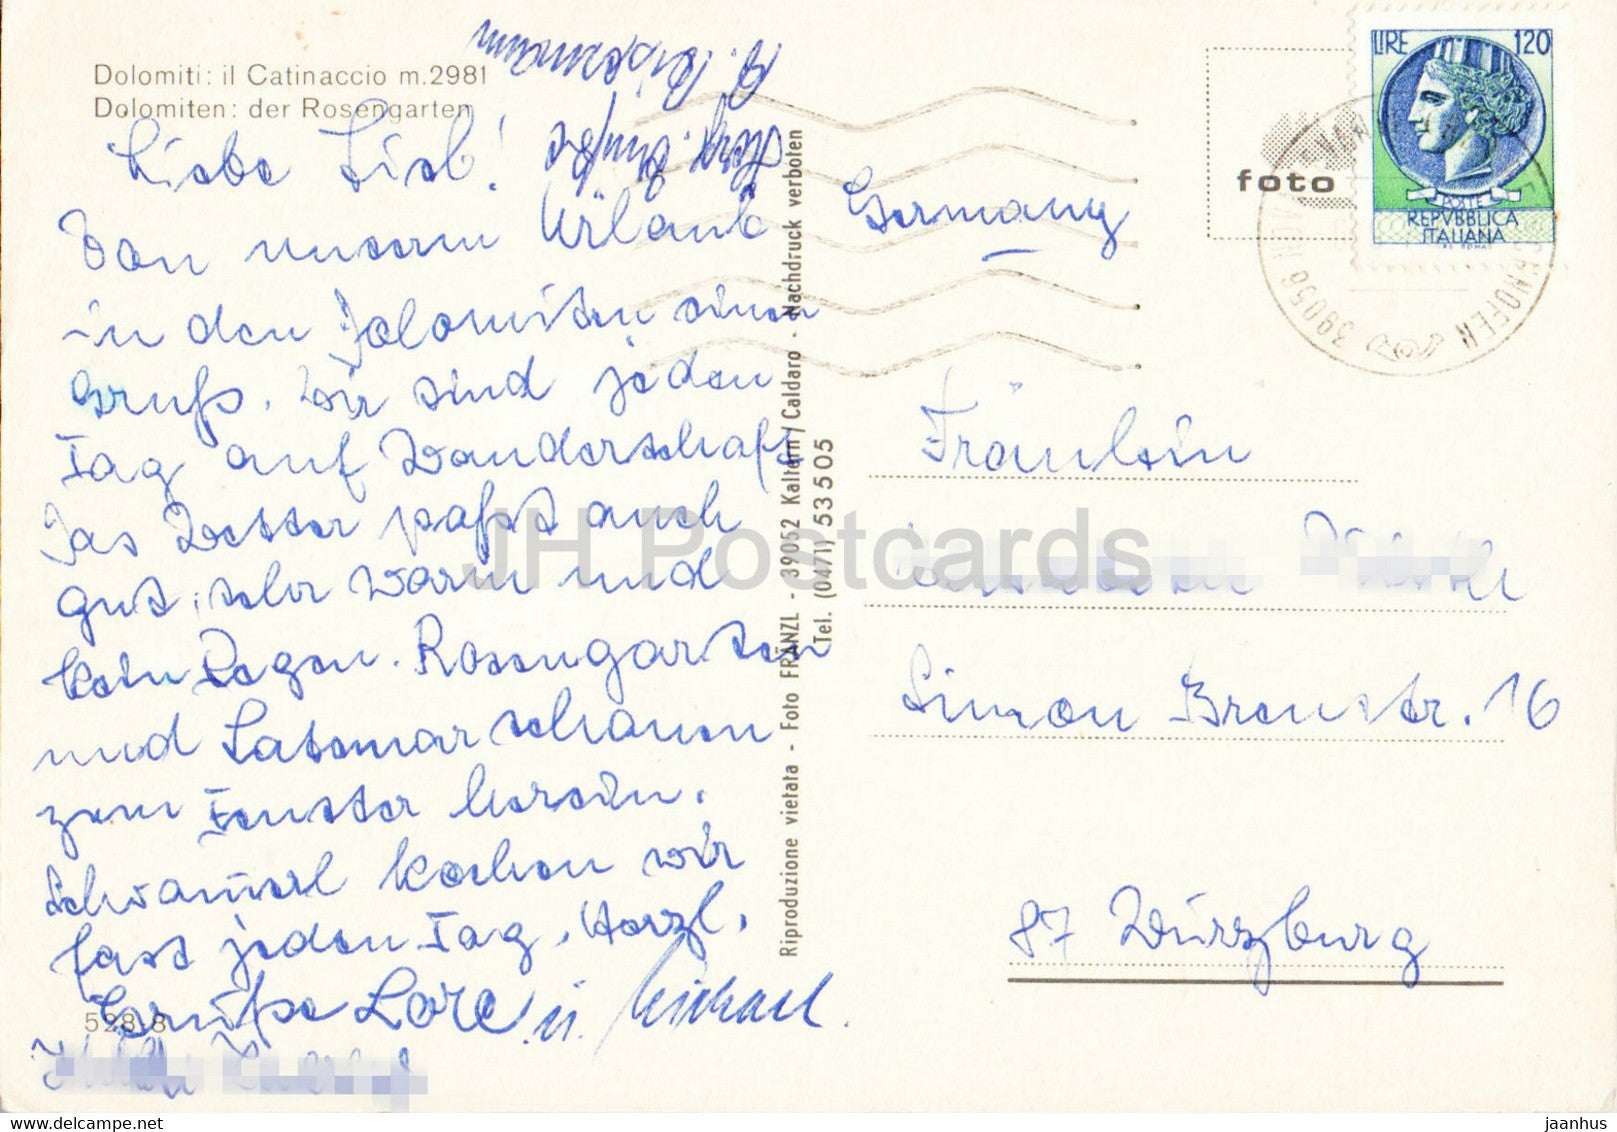 Dolomiti: il Catinaccio m.2981
Dolomiten: der Rosengarten
Liebe Lisl!
Von unserm Urlaub
in den Dolomiten einen
Gruß. Wir sind jeden
Tag auf Wanderschaft
Das Wetter paßt auch
gut, sehr warm und
kein Regen. Rosengarten
und Latemar schauen
zum Fenster herein.
Schwammerl kochen wir
fast jeden Tag. Herzl.
Grüße Lore u. Michael
528/8
Herzl. Grüße
Riproduzione vietata - Foto FRÄNZL - 39052 Kaltern/Caldaro - Nachdruck verboten
Tel. (0471) 53505
Germany
foto
LIRE 120
POSTE
REPVBBLICA
ITALIANA
39056
Fräulein
Simon Breustr. 16
87 Würzburg
JH Postcards
delcampe.net
jaanhus